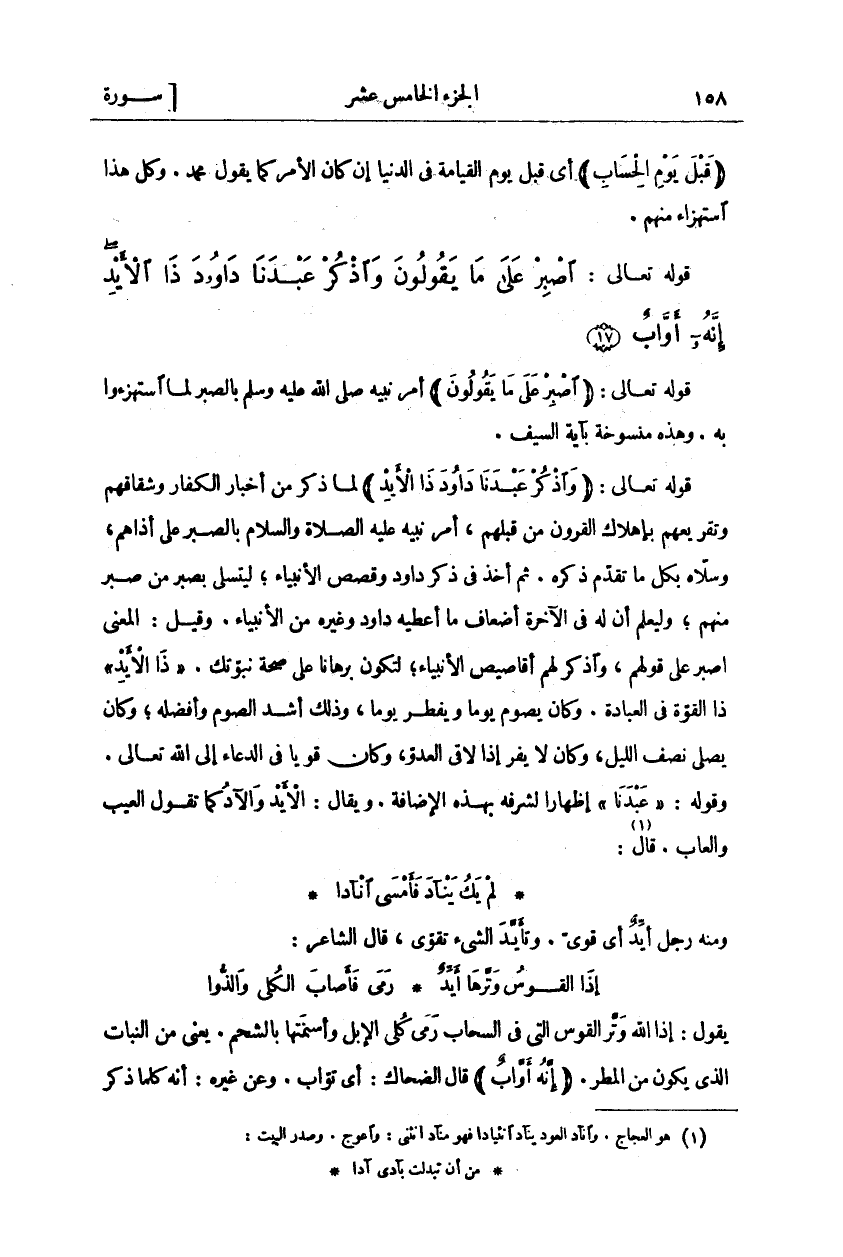 ١٥٨ الجزء الخامس عشر [ سـورة
﴿قَبْلَ يَوْمِ الْحِسَابِ﴾ أى قبل يوم القيامة فى الدنيا إن كان الأمر كما يقول محمد . وكل هذا
ٱستهزاء منهم .
قوله تعـالى : ٱصْبِرْ عَلَىٰ مَا يَقُولُونَ وَٱذْكُرْ عَبْـدَنَا دَاوُۥدَ ذَا ٱلْأَيْدِ ۖ
إِنَّهُۥٓ أَوَّابٌ ⟨١٧⟩
قوله تعـالى : ﴿ٱصْبِرْ عَلَى مَا يَقُولُونَ﴾ أمر نبيه صلى الله عليه وسلم بالصبر لمـا ٱستهزءوا
به . وهذه منسوخة بآية السيف .
قوله تعـالى : ﴿وَٱذْكُرْ عَبْـدَنَا دَاوُدَ ذَا الْأَيْدِ﴾ لمـا ذكر من أخبار الكفار وشقاقهم
وتقريعهم بإهلاك القرون من قبلهم ، أمر نبيه عليه الصـلاة والسلام بالصـبر على أذاهم ،
وسلّاه بكل ما تقدّم ذكره . ثم أخذ فى ذكر داود وقصص الأنبياء ؛ ليتسلى بصبر من صـبر
منهم ؛ وليعلم أن له فى الآخرة أضعاف ما أعطيه داود وغيره من الأنبياء . وقيـل : المعنى
اصبر على قولهم ، وٱذكر لهم أقاصيص الأنبياء ؛ لتكون برهانا على صحة نبؤتك . « ذَا الْأَيْدِ »
ذا القوّة فى العبادة . وكان يصوم يوما ويفطـر يوما ، وذلك أشـد الصوم وأفضله ؛ وكان
يصلى نصف الليل، وكان لا يفر إذا لاقى العدوّ، وكان قويا فى الدعاء إلى الله تعـالى .
وقوله : « عَبْدَنَا » إظهارا لشرفه بهـذه الإضافة . ويقال : الْأَيْد وَالآدُ كما تقـول العيب
والعاب . قال (١) :
* لَمْ يَكُ يَنْآدَ فَأَمْسَى ٱنْآدَا *
ومنه رجل أَيِّدٌ أى قوىّ . وتَأيَّدَ الشىء تقوّى ، قال الشاعر :
إذَا القَـوسُ وَتَّرهَا أَيِّدٌ * رَمَى فَأَصابَ الكُلَى وَالذُّرا
يقول : إذا الله وَتَّر القوس التى فى السحاب رَمَى كُلَى الإبل وأسنمتها بالشحم . يعنى من النبات
الذى يكون من المطر . ﴿إِنَّهُ أَوَّابٌ﴾ قال الضحاك : أى توّاب . وعن غيره : أنه كلما ذكر
(١) هو العجاج . وٱنآد العود ينآد ٱنئيادا فهو منآد ٱنثنى : وٱعوج . وصدر البيت :
* من أن تبدلت بآدى آدا *